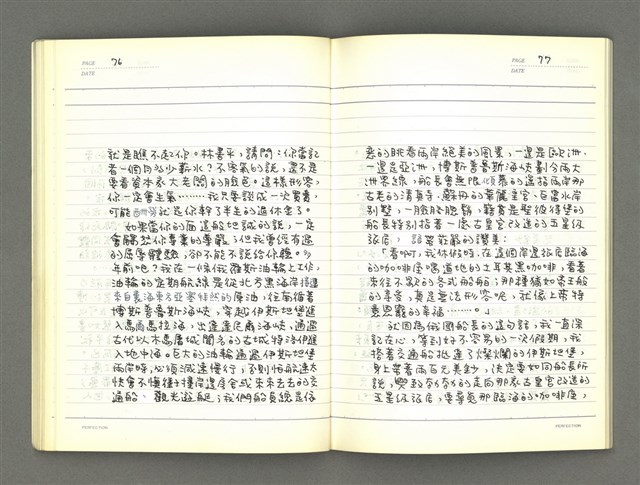 PAGE 76
DATE
就是瞧不起你。林書平，請問：你當記
者一個月多少薪水？不客氣的說，還不是
要看資本家大老闆的臉色。這樣形容，
你一定會生氣………我只要談成一次買賣，
可能就是你幹了半生的退休金了。
如果當你的面這般坦誠的說，一定
會觸怒你專業的尊嚴；但我曾經有過
的屈辱體驗，卻不能不說給你聽。
年前吧？我在一條俄羅斯油輪上工作，
油輪的定期航線是從北方黑海岸
的原油，往南循著
博斯普魯斯海峽，穿越伊斯坦堡進
入馬爾馬拉海，出達達尼爾海峽，通過
古代以木馬屠城聞名的古城特洛伊進
入地中海。巨大的油輪通過伊斯坦堡
兩岸時，必須減速慢行，否則怕航速太
快會不慎撞擊岸邊屋舍或來來去去的交
通船、觀光遊艇；我們船員總是依
PERFECTION
PAGE 77
DATE
戀的眺看兩岸絕美的風景，一邊是歐洲，
一邊是亞洲，博斯普魯斯海峽劃分兩大
洲界線，船長會無限傾慕的遙指兩岸那
古老的清真寺、蘇丹的華麗皇宮、百富水岸
別墅，一臉狡黠貌，籍貫是聖彼得堡的
船長特別指著一座古皇宮改造的五星級
旅店，嚴的讚美：
「看啊，我休假時，在這個岸邊旅店臨海
的咖啡座喝道地的土耳其黑咖啡，看著
來往不歇的各式船舶；那種猶如帝王般
的享受，真是無法形容呢，就像上帝特
意恩寵的幸福………。」
就因為俄國船長的這句話，我一直深
記在心，等到好不容易的一次假期，我
搭著交通船抵達了燦爛的伊斯坦堡，
身上帶著兩百元美鈔，決定要如同船長所
說，興致勃勃的走向那家古皇宮改造的
五星級旅店，要享受那臨海的咖啡座，
PERFECTION